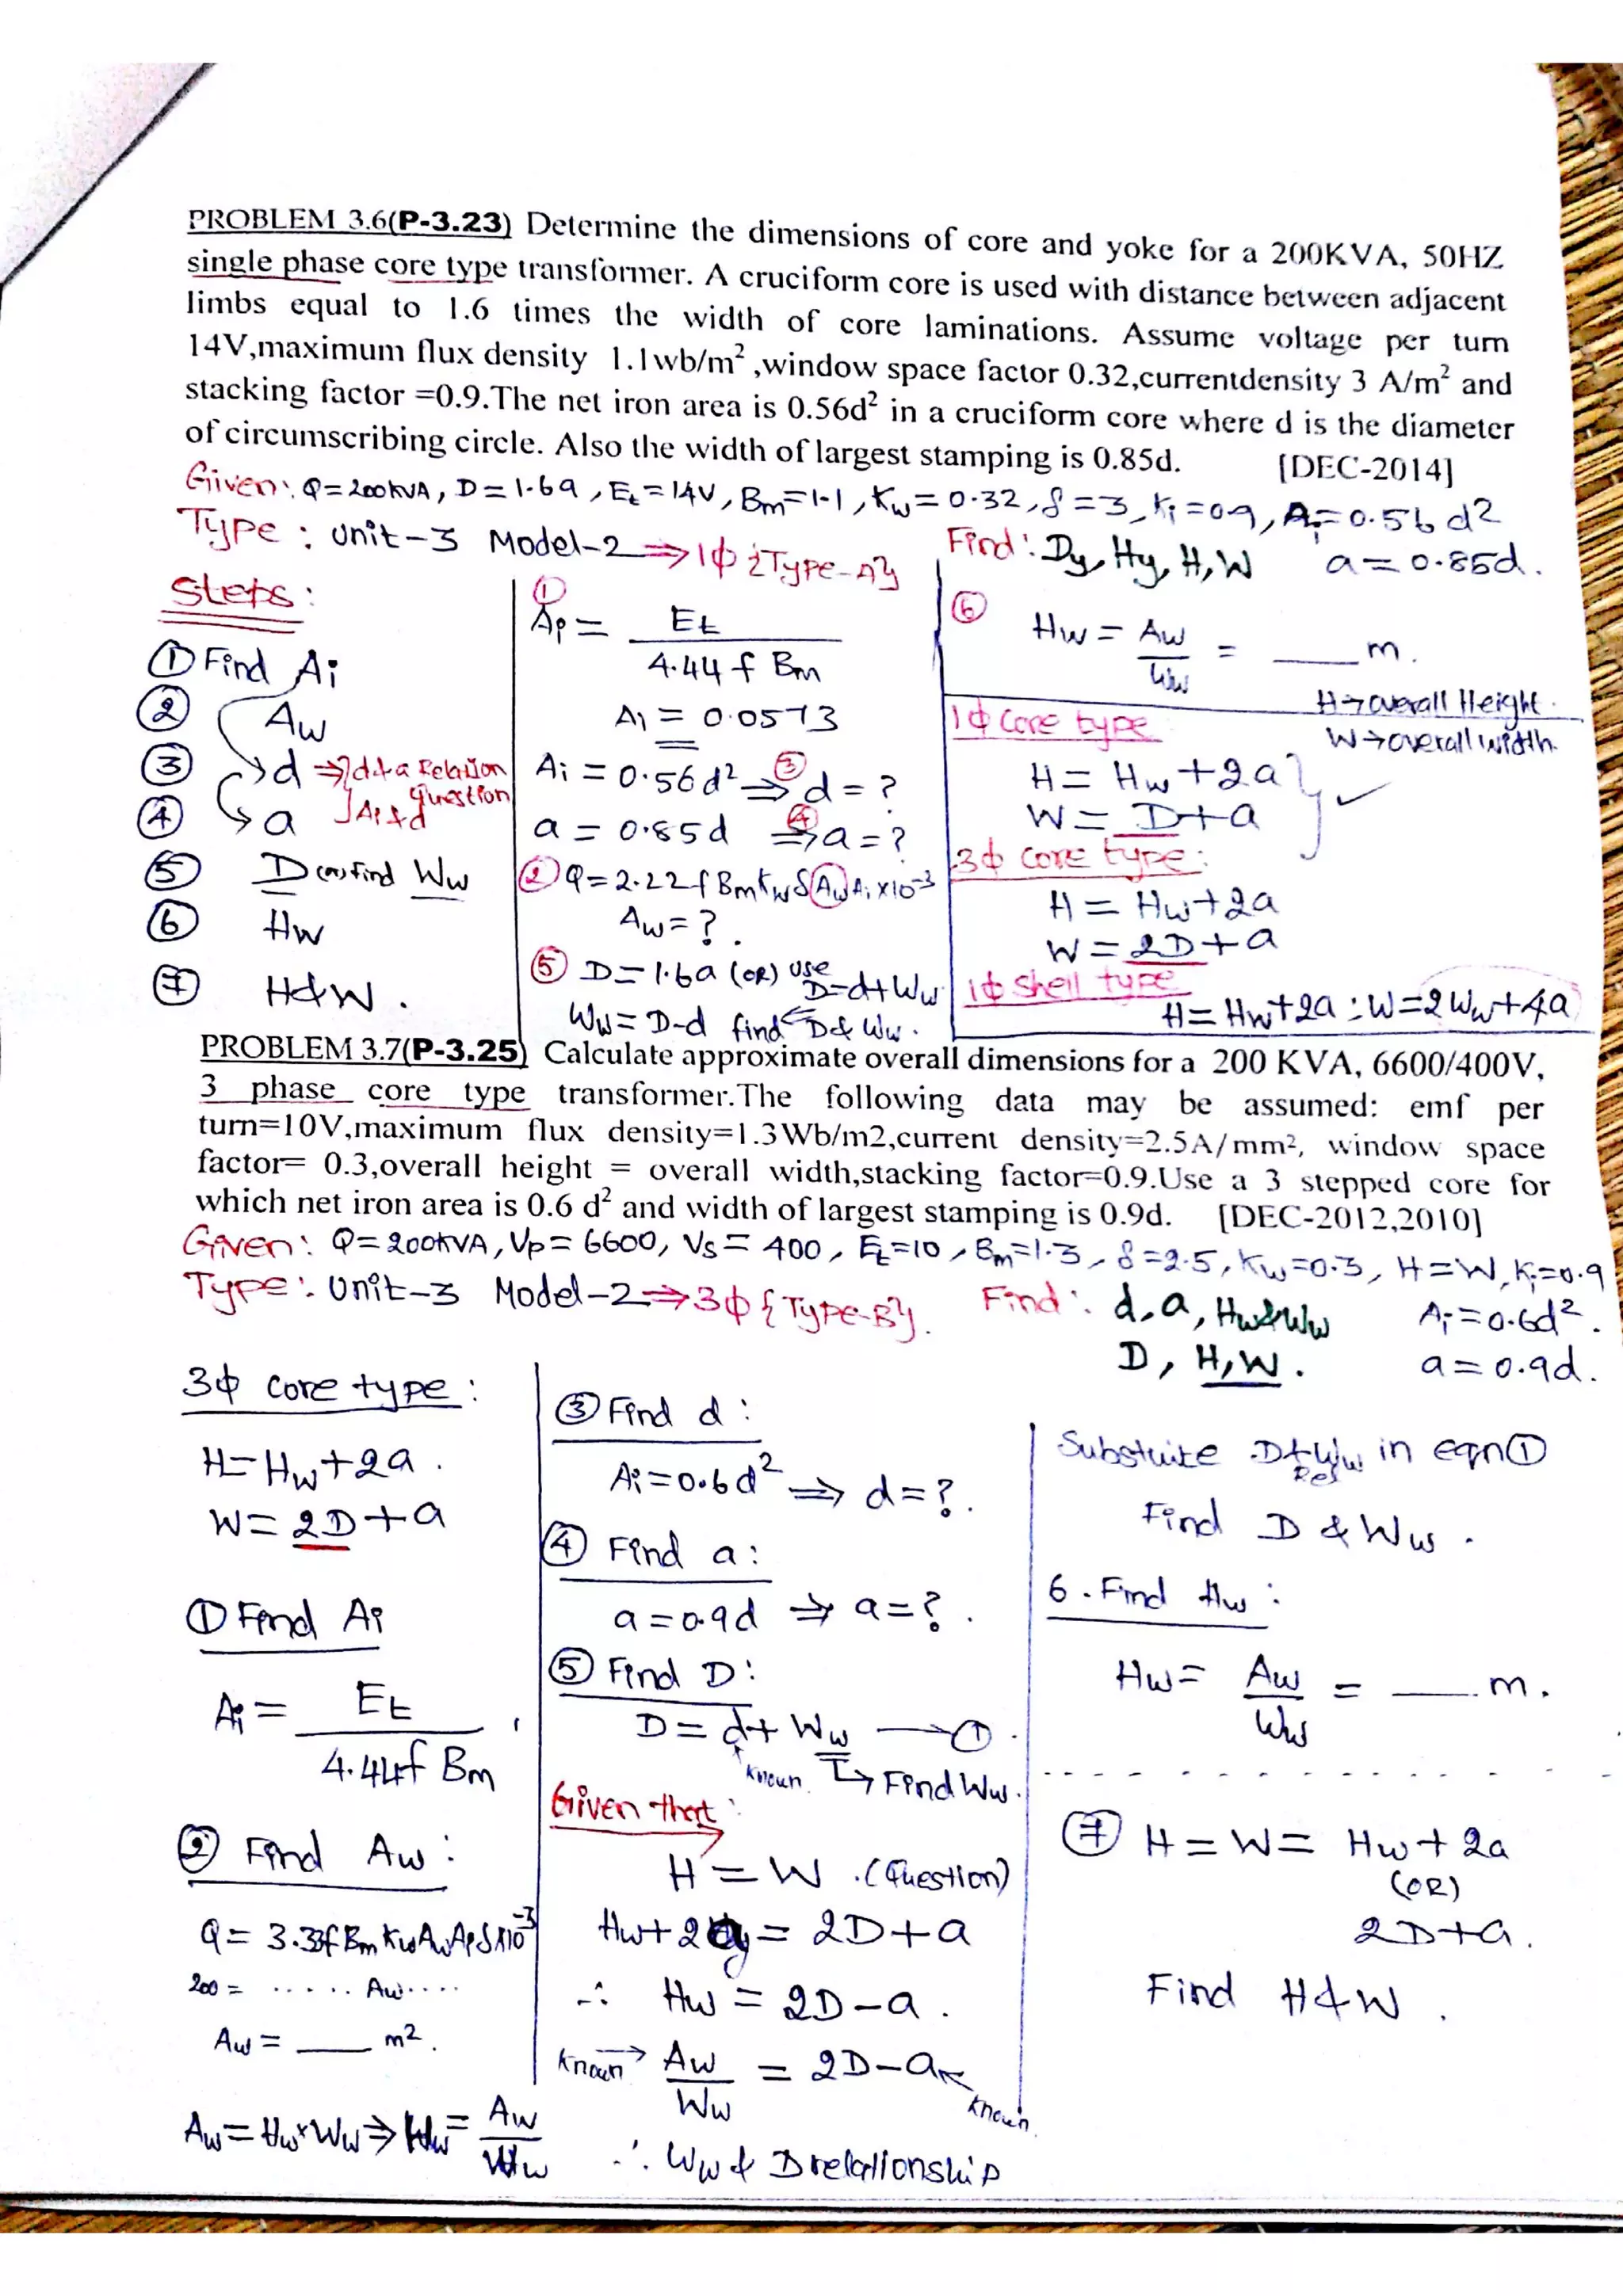 PROBLEM 3.6(P-3.23) Determine the dimensions of core and yoke for a 200KVA, 50HZ
single phase core type transformer. A cruciform core is used with distance between adjacent
limbs equal to 1.6 times the width of core laminations. Assume voltage per turn
14V,maximum flux density 1.1wb/m²,window space factor 0.32,currentdensity 3 A/m² and
stacking factor =0.9.The net iron area is 0.56d² in a cruciform core where d is the diameter
of circumscribing circle. Also the width of largest stamping is 0.85d. [DEC-2014]
Given: Q=200KVA, D=1.6a, Et=14V, Bm=1.1, Kw=0.32, δ=3, Ki=0.9, Ai=0.56d²
Type: Unit-3 Model-2⇒1ϕ{Type-A} Find: Dy, Hy, H, W a=0.85d.
Steps:
① Find Ai
② Aw
③ d ⇒ d & a Relation
Ai & d question
④ a
⑤ D (or) find Ww
⑥ Hw
⑦ H&W.
①
Ai = Et / 4.44 f Bm
Ai = 0.0573
Ai = 0.56d² ⇒③ d = ?
a = 0.85d ⇒④ a = ?
② Q=2.22f Bm Kw δ Aw Ai x10⁻³
Aw = ?.
⑤ D=1.6a (OR) use D=d+Ww
Ww=D-d find D & Ww.
⑥ Hw = Aw / Ww = ____ m.
H→overall Height.
W→overall width.
1ϕ Core type
H = Hw+2a
W = D+a
3ϕ core type:
H = Hw+2a
W = 2D+a
1ϕ shell type
H = Hw+2a : W=2Ww+4a
PROBLEM 3.7(P-3.25) Calculate approximate overall dimensions for a 200 KVA, 6600/400V,
3 phase core type transformer.The following data may be assumed: emf per
turn=10V,maximum flux density=1.3Wb/m2,current density=2.5A/mm², window space
factor= 0.3,overall height = overall width,stacking factor=0.9.Use a 3 stepped core for
which net iron area is 0.6 d² and width of largest stamping is 0.9d. [DEC-2012,2010]
Given: Q=200KVA, Vp=6600, Vs=400, Et=10, Bm=1.3, δ=2.5, Kw=0.3, H=W, Ki=0.9
Type: Unit-3 Model-2⇒3ϕ{Type-B}. Find: d, a, Hw&Ww Ai=0.6d².
D, H, W. a=0.9d.
3ϕ core type:
H=Hw+2a.
W=2D+a
① Find Ai
Ai = Et / 4.44f Bm,
② Find Aw:
Q = 3.33f Bm Kw Aw Ai δ x10⁻³
200 = ..... Aw....
Aw = ____ m².
Aw=Hw×Ww⇒Hw= Aw / Ww
③ Find d:
Ai=0.6d² ⇒ d=?.
④ Find a:
a=0.9d ⇒ a=?.
⑤ Find D:
D = d+Ww —①.
known → Find Ww.
Given that:
H = W .(Question)
Hw+2a = 2D+a
∴ Hw = 2D-a.
known → Aw / Ww = 2D-a
known
∴ Ww & D relationship
Substuite D&Ww in eqn①
Rel
Find D & Ww.
6. Find Hw:
Hw = Aw / Ww = ____ m.
⑦ H=W= Hw+2a
(OR)
2D+a.
Find H&W.